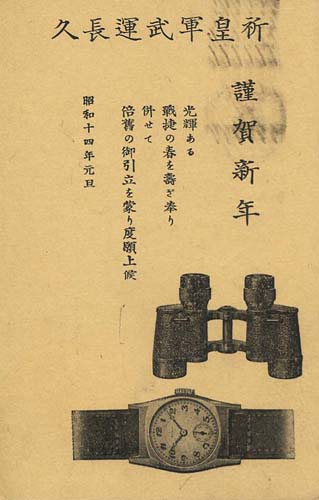 祈皇軍武運長久
謹賀新年
光輝ある
戰捷の春を壽ぎ奉り
併せて
倍舊の御引立を蒙り度願上候
昭和十四年元旦